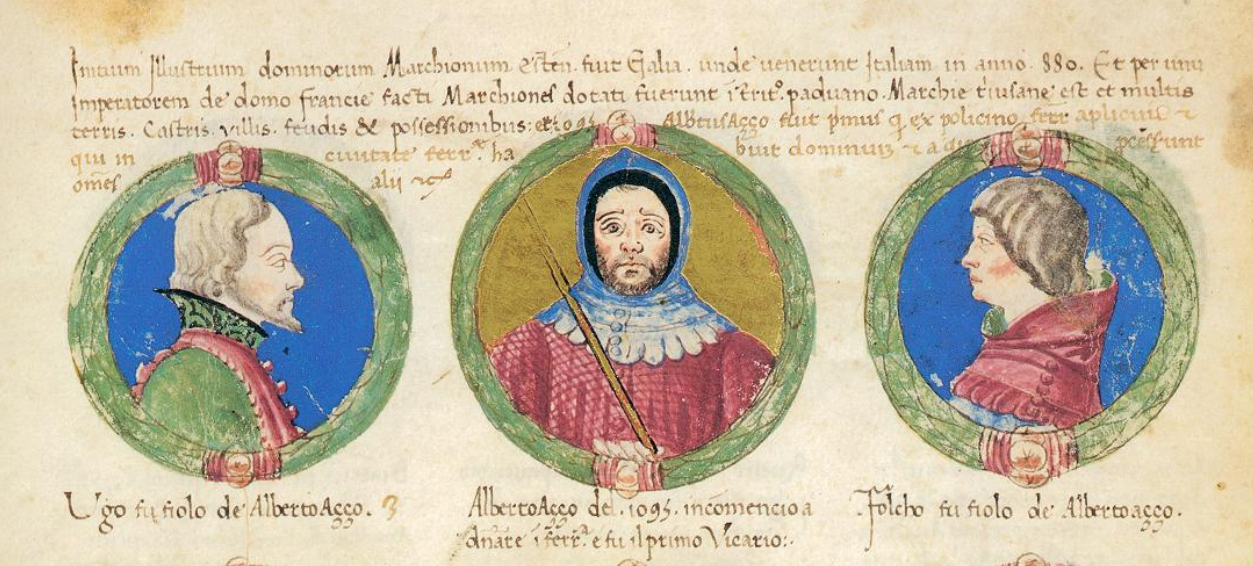 Initium Illustrium dominorum Marchionum esten. fuit Galia. unde uenerunt Italiam in anno. 880. Et per unu
Imperatorem de domo francie facti Marchiones dotati fuerunt i territo. paduano. Marchie triuisane est et multis
terris. Castris. villis. feudis & possessionibus: et 1095 Albtus Acco fuit pmus q ex policino ferr aplicuit
qui in ciuitate ferr.ª ha buit dominium pcesserunt
omes alii
Ugo fu fiolo de Alberto Acco. 3
Alberto Acco del .1095. incomencio a
dnare i ferr.ª e fu il primo Vicario:.
Folcho fu fiolo de Alberto acco.